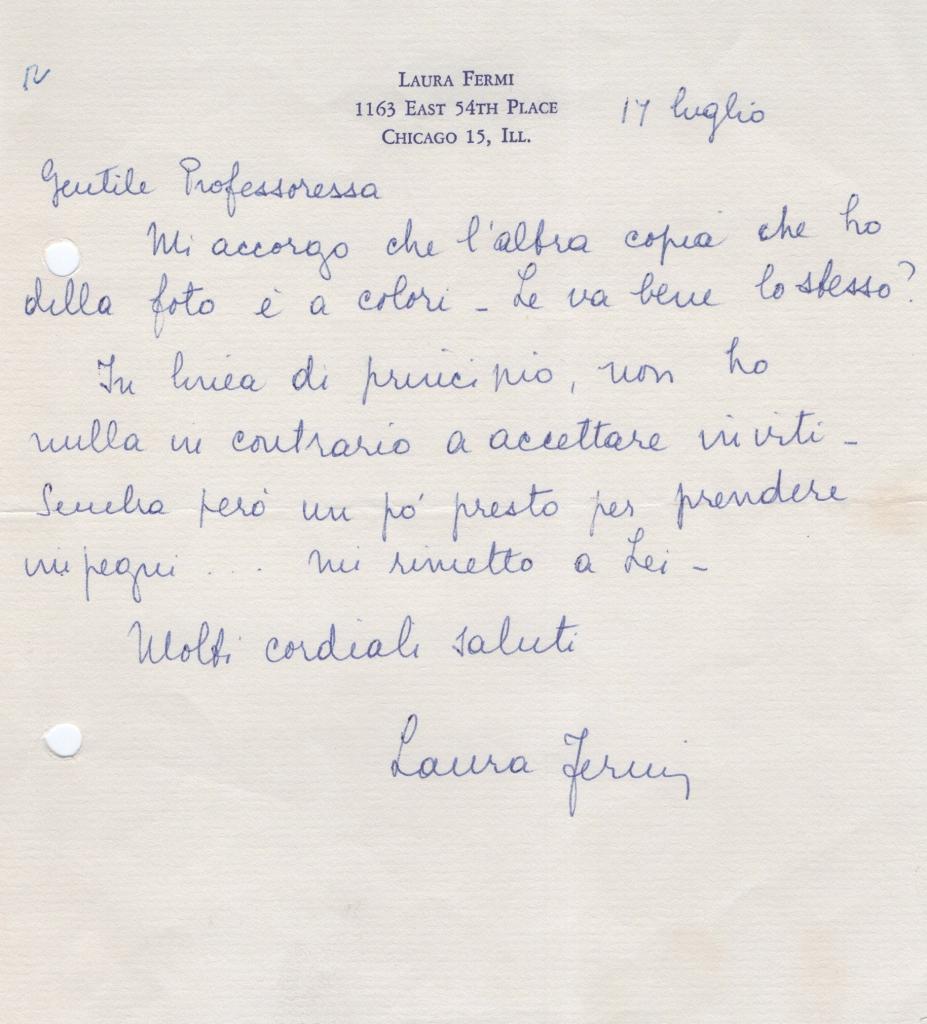 LAURA FERMI
1163 EAST 54TH PLACE
CHICAGO 15, ILL.
17 luglio
Gentile Professoressa
Mi accorgo che l'altra copia che ho
della foto è a colori - Le va bene lo stesso?
In linea di principio, non ho
nulla in contrario a accettare inviti -
Sembra però un pó presto per prendere
impegni .... mi rimetto a Lei -
Molti cordiali saluti
Laura Fermi